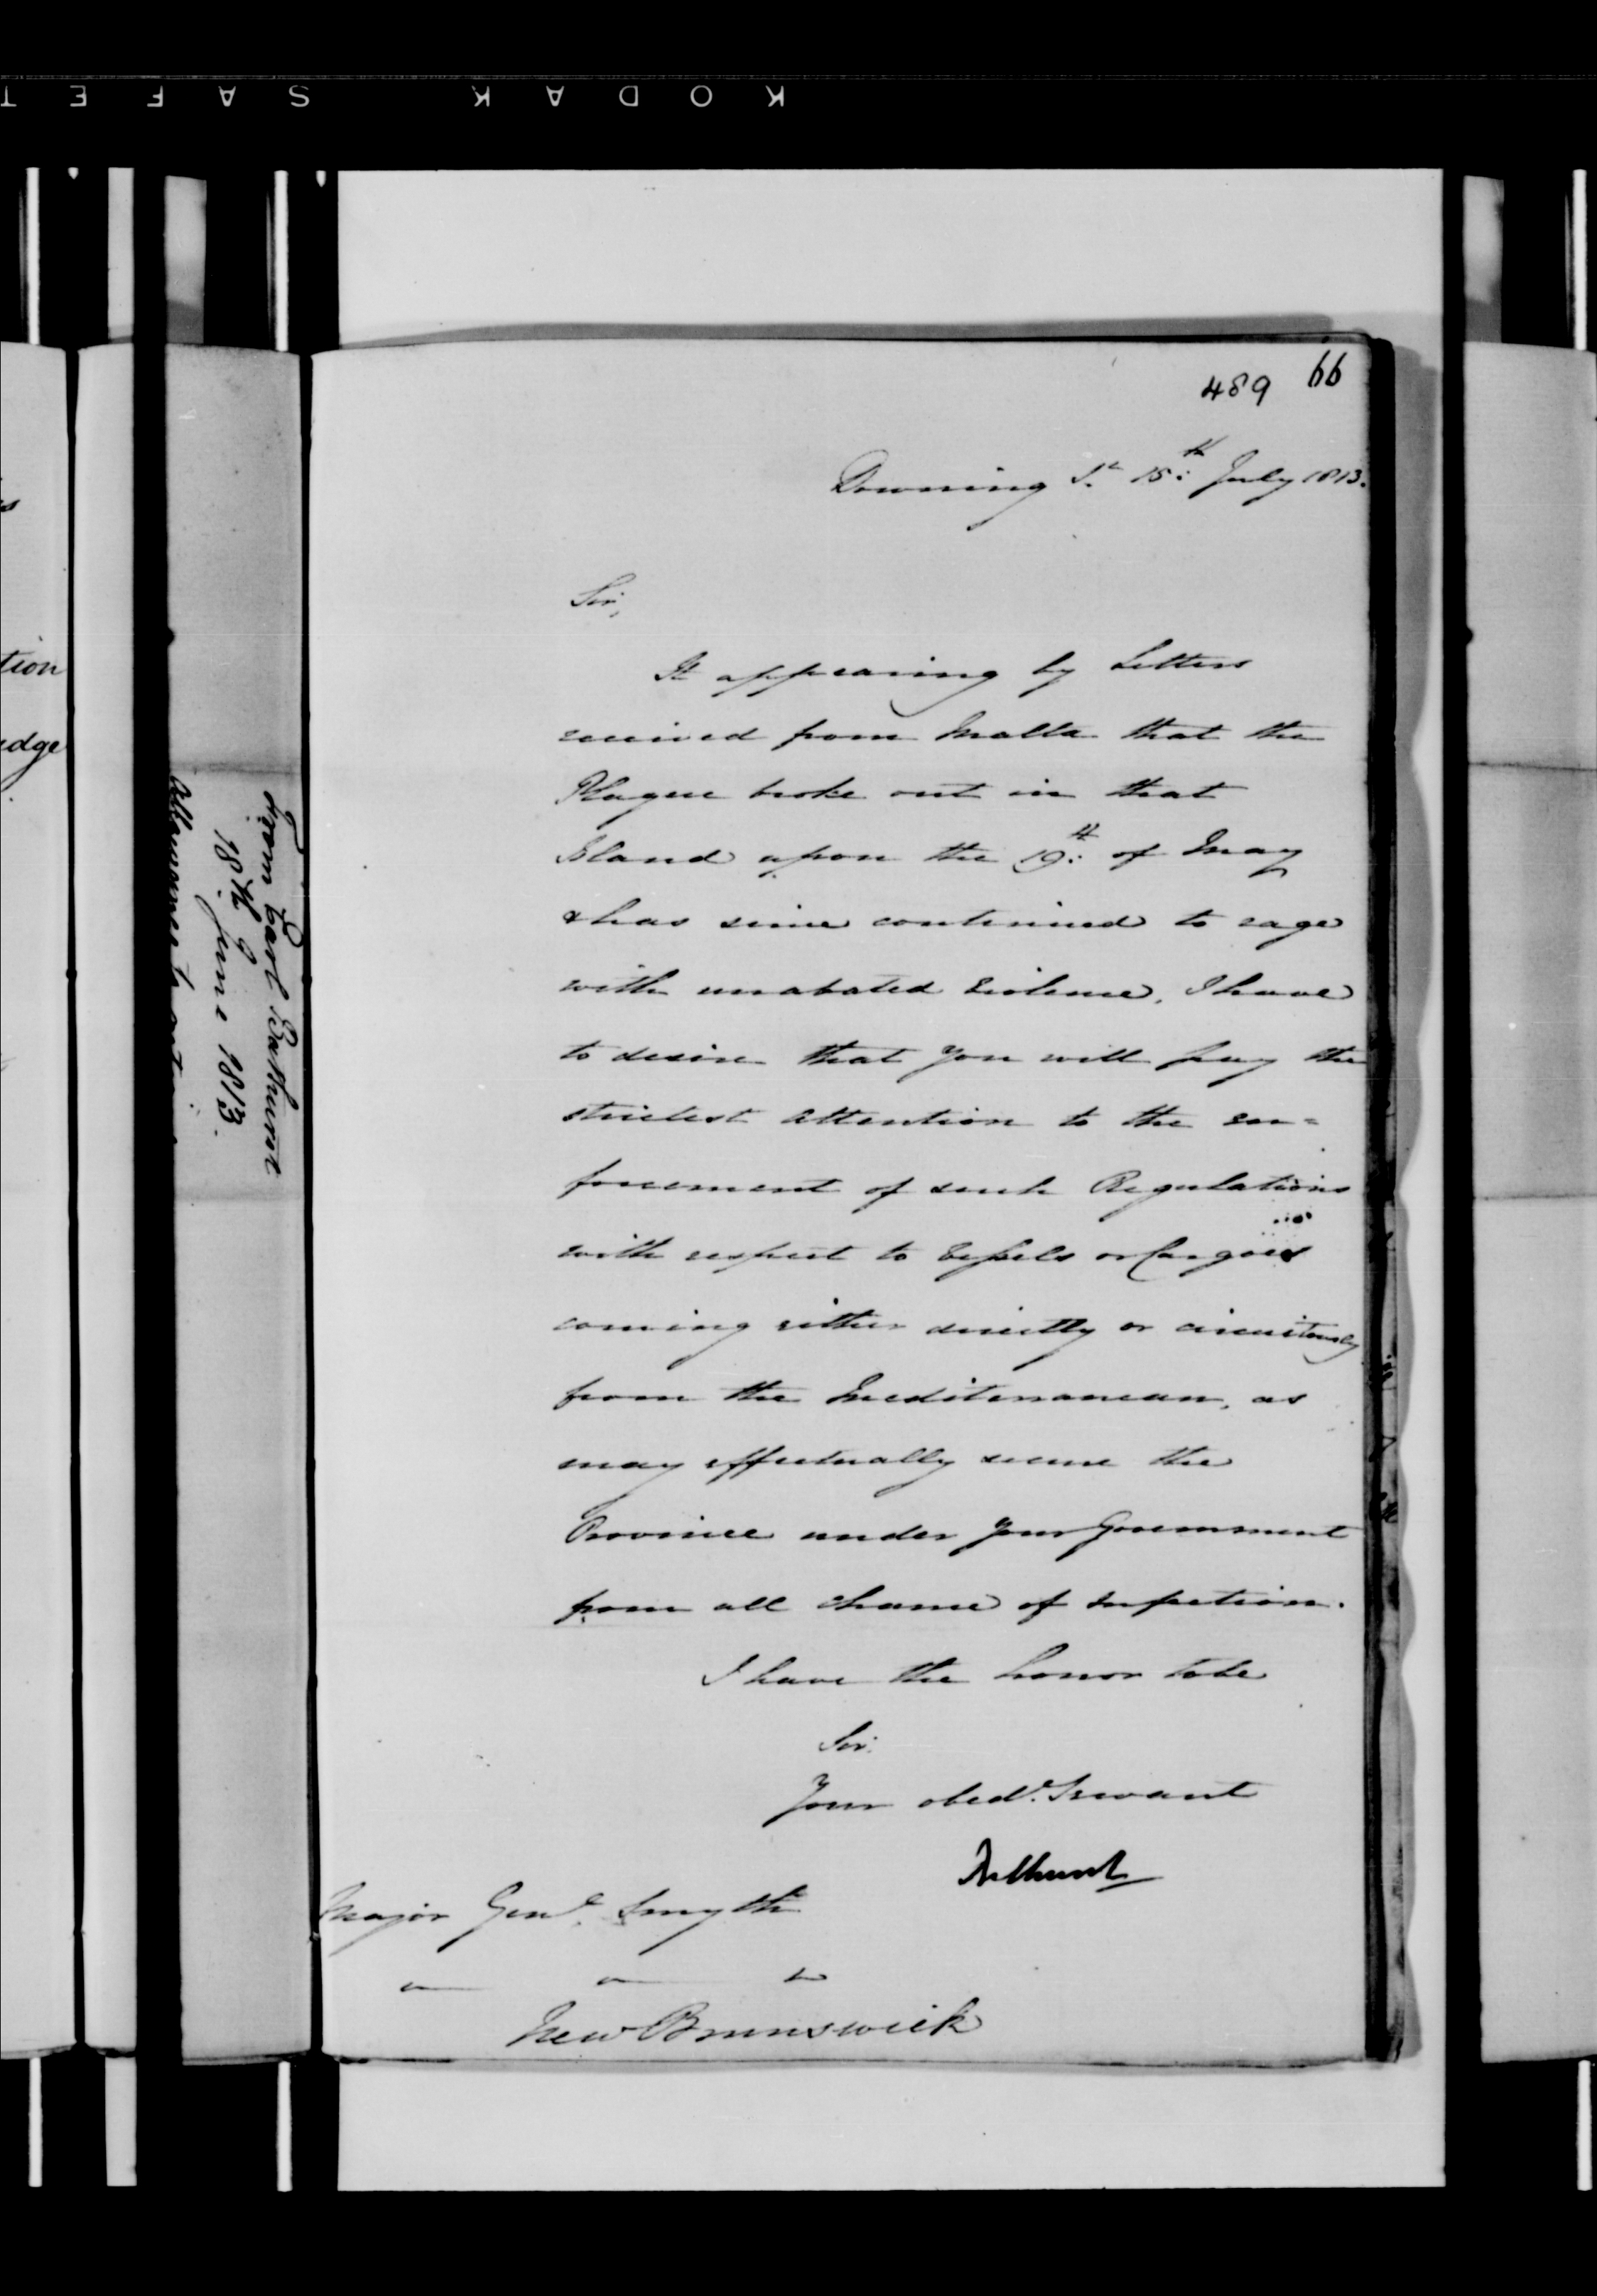 KODAK SAFET
489 66
Downing St. 15th: July 1813.
Sir,
It appearing by Letters
received from Malta that the
Plague broke out in that
Island upon the 19th: of May
& has since continued to rage
with unabated violence, I have
to desire that you will pay the
strictest attention to the en=
forcement of such Regulations
with respect to Vessels or Cargoes
coming either directly or circuitously
from the Mediterranean, as
may effectually secure the
Province under your Government
from all chance of Infection.
I have the honor to be
Sir.
Your obedt. Servant
Bathurst
Major Genl. Smyth
New Brunswick
From Earl Bathurst
18th June 1813.
tion
edge